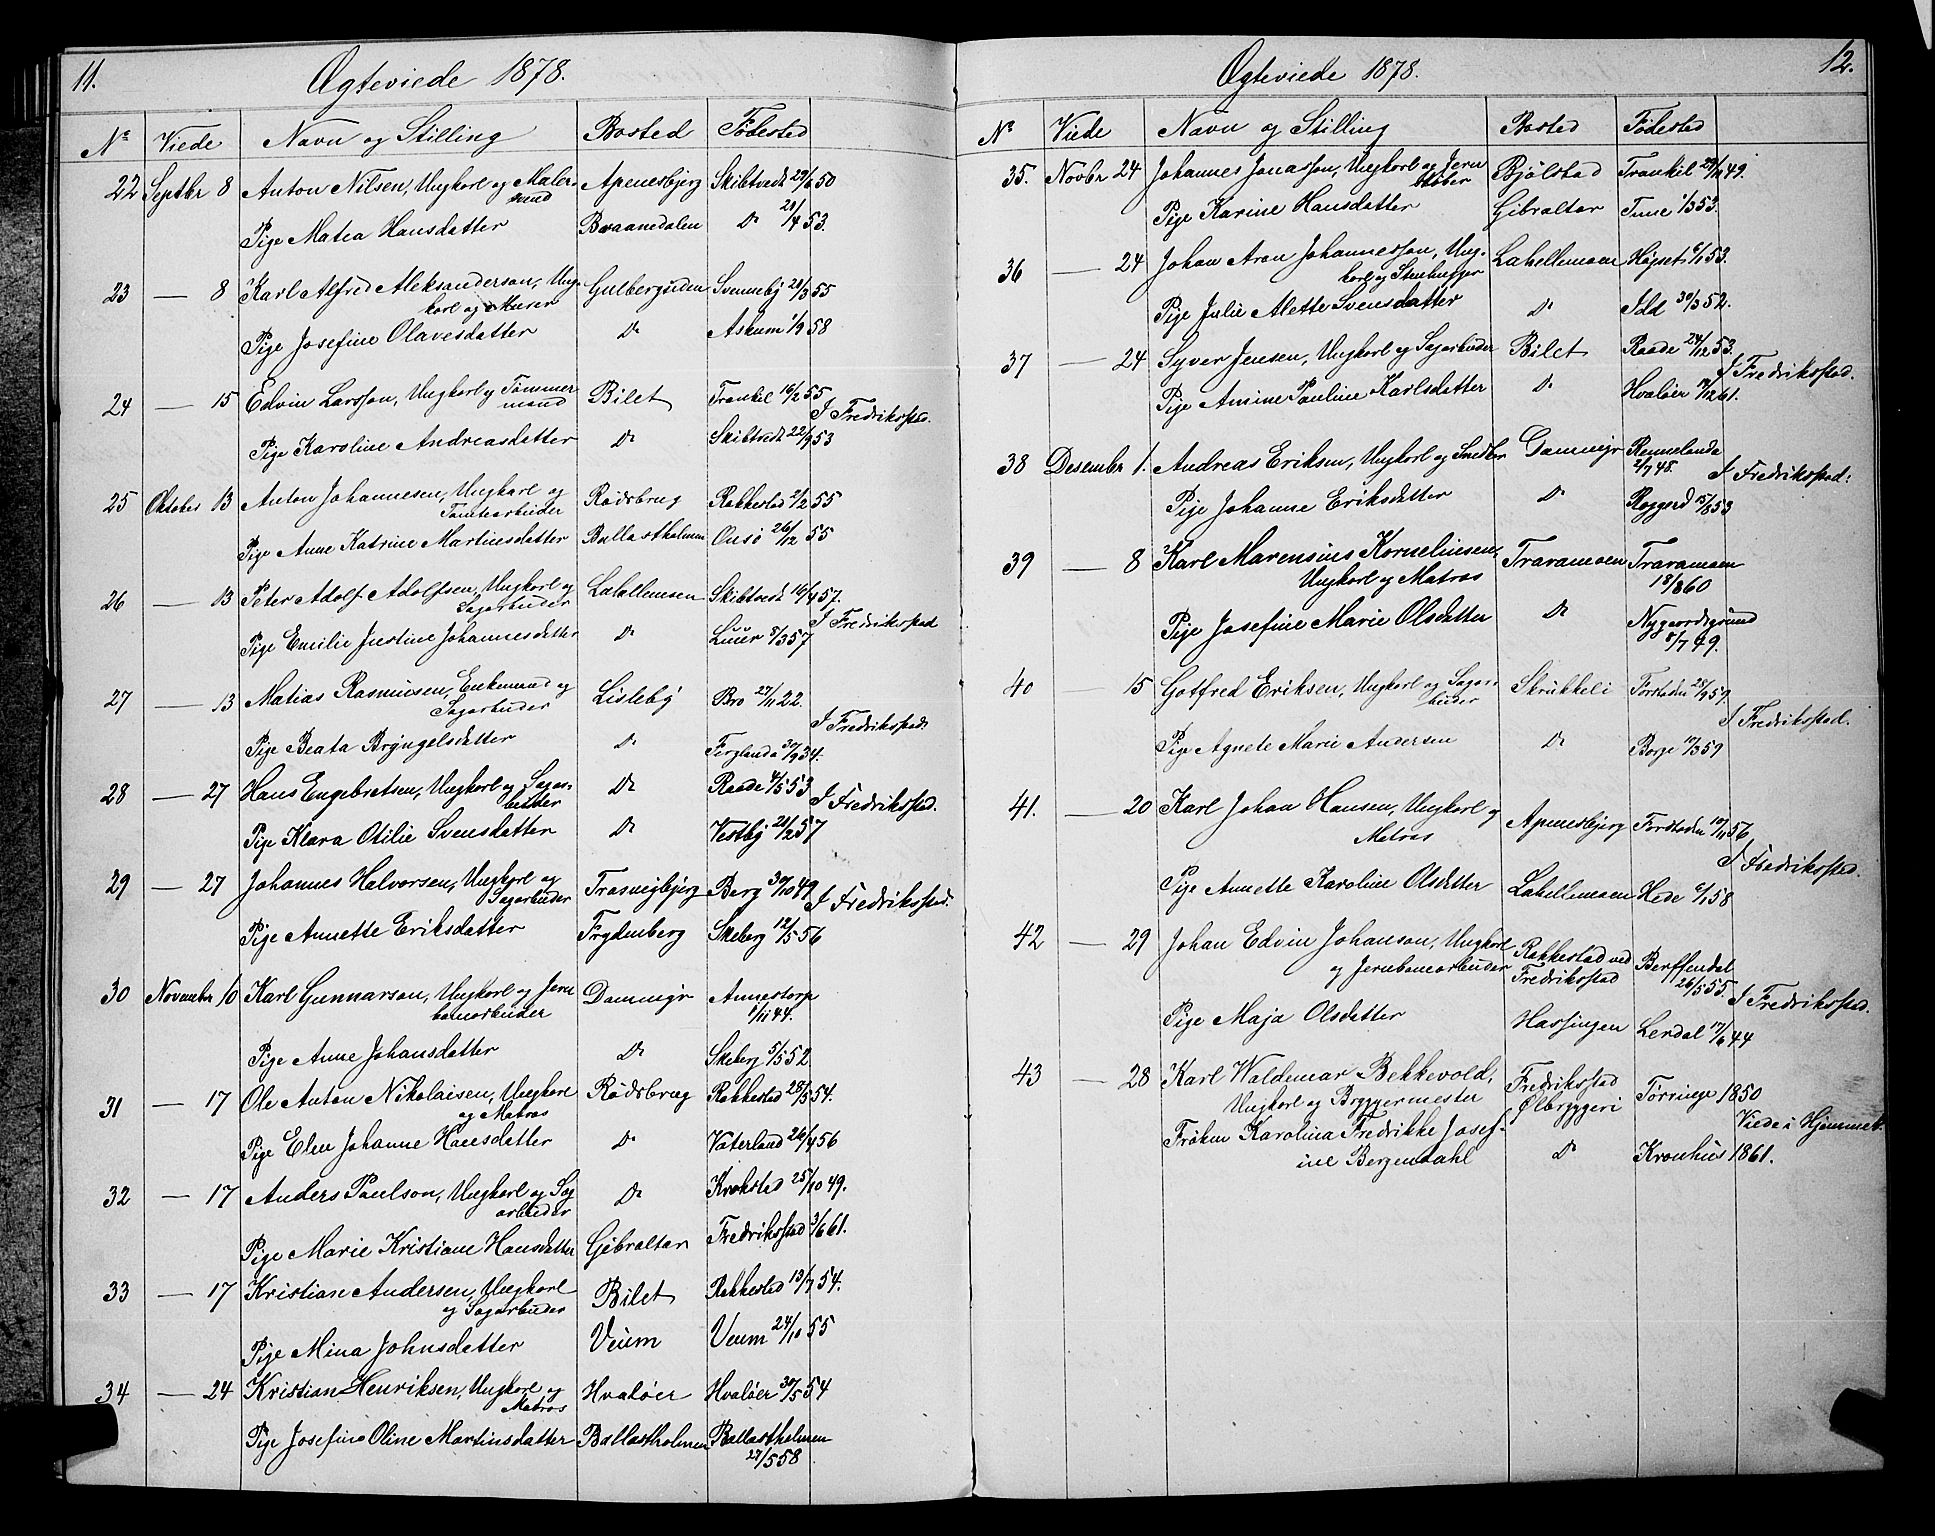 11.
Ægteviede 1878.
Nº Viede Navn og Stilling Bosted Fødested
22 Septbr 8 Anton Nilsen, Ungkarl og Maler- Apenesbjerg Skibtvedt 29/6 50
svend
Pige Matea Hansdatter Braanedalen Do 21/4 53.
23 — 8 Karl Alfred Aleksanderson, Ung- Gulbergsiden Svenneby 28/3 55
karl og Murer
Pige Josefine Olavesdatter Do Askum 1/9 58
24 — 15 Edvin Larsson, Ungkarl og Tømmer Bilet Trankil 16/2 55
mand
I Fredriksstad.
Pige Karoline Andreasdatter Do Skibtvedt 22/9 53
25 Oktober 13 Anton Johannesen, Ungkarl og Rødsbrug Rakkestad 2/2 55
Tomtearbeider
Pige Anne Katrine Martinsdatter Ballastholmen Onsø 26/12 55
26 — 13 Peter Adolf Adolfsen, Ungkarl og Lahellemoen Skibtvedt 16/4 57.
Sagarbeider
I Fredriksstad
Pige Emilie Justine Johannesdatter Do Luur 8/3 57
27 — 13 Matias Rasmussen, Enkemand og Lisleby Bro 27/11 22.
Sagarbeider
I Fredriksstad.
Pige Beata Bryngelsdatter Do Ferglanda 30/9 34.
28 — 27 Hans Engebretsen, Ungkarl og Sagar- Do Raade 4/5 53
beider
I Fredriksstad.
Pige Klara Otilie Svensdatter Do Vestby 21/2 57
29 — 27 Johannes Halvorsen, Ungkarl og Trosvigbjerg Berg 30/10 49
Sagarbeider
I Fredriksstad.
Pige Annette Eriksdatter Frydenberg Skeberg 12/5 56
30 November 10 Karl Gunnarson, Ungkarl og Jern Dammyr Annestorp
banearbeider 1/11 44.
Pige Anne Johansdatter Do Skeberg 5/5 52
31 — 17 Ole Anton Nikolaisen, Ungkarl Rødsbrug Rakkestad 28/5 54.
og Matros
Pige Elen Johanne Hansdatter Do Vaterland 26/4 56
32 — 17 Anders Paulson, Ungkarl og Sag Do Krokstad 25/10 49.
arbeider
Pige Marie Kristiane Hansdatter Gibraltar Fredriksstad 3/6 61.
33 — 17 Kristian Andersen, Ungkarl Bilet Rakkestad 13/7 54.
og Sagarbeider
Pige Mina Johnsdatter Veum Veum 24/10 55
34 — 24 Kristian Henriksen, Ungkarl og Hvaløer Hvaløer 30/5 54
Matros
Pige Josefine Oline Martinsdatter Ballastholmen Ballastholmen
27/5 58
12.
Ægteviede 1878.
Nº Viede Navn og Stilling Bosted Fødested
35. Novbr 24 Johannes Jonasson, Ungkarl og Jern Bjølstad Trankil 29/11 49.
støber
Pige Karine Hansdatter Gibraltar Tune 1/3 53.
36 — 24 Johan Aron Johannesson, Ung- Lahellemoen Högset 6/1 53.
karl og Stenhugger
Pige Julie Alette Svensdatter Do Idd 30/3 52.
37 — 24 Syver Jensen, Ungkarl og Sagarbeider Bilet Raade 24/12 53.
I Fredriksstad.
Pige Amine Pauline Karlsdatter Do Hvaløer 19/12 61.
38 Desember 1. Andreas Eriksen, Ungkarl og Snedker Dammyr Rennelanda
2/7 48.
I Fredriksstad.
Pige Johanne Eriksdatter Do Roggerd 15/6 53
39 — 8 Karl Marensius Korneliusen, Travamoen Travamoen
Ungkarl og Matros 18/8 60
Pige Josefine Marie Olsdatter Do Nygaardsgrund
8/7 49.
40 — 15 Gotfred Eriksen, Ungkarl og Sagar- Skrikkeli Forstaden 28/9 59.
beider
I Fredriksstad.
Pige Agnete Marie Andersen Do Borge 17/3 59
41. — 20 Karl Johan Hansen, Ungkarl og Apenesbjerg Forstaden 10/11 56
Matros
I Fredriksstad.
Pige Annette Karoline Olsdatter Lahellemoen Hede 6/1 58
42 — 29 Johan Edvin Johanson, Ungkarl Rakkestad ved
og Jernbanearbeider Fredriksstad Berffendal
26/5 55.
I Fredriksstad.
Pige Maja Olsdatter Hassingen Lerdal 17/6 44
43 — 28 Karl Waldemar Bekkevold, Fredriksstad
Ungkarl og Bryggermester Ølbryggeri Tørringe 1850
Viede i Hjemmet.
Frøken Karolina Fredrikke Josef-
ine Bergendahl Do Kronhus 1861.